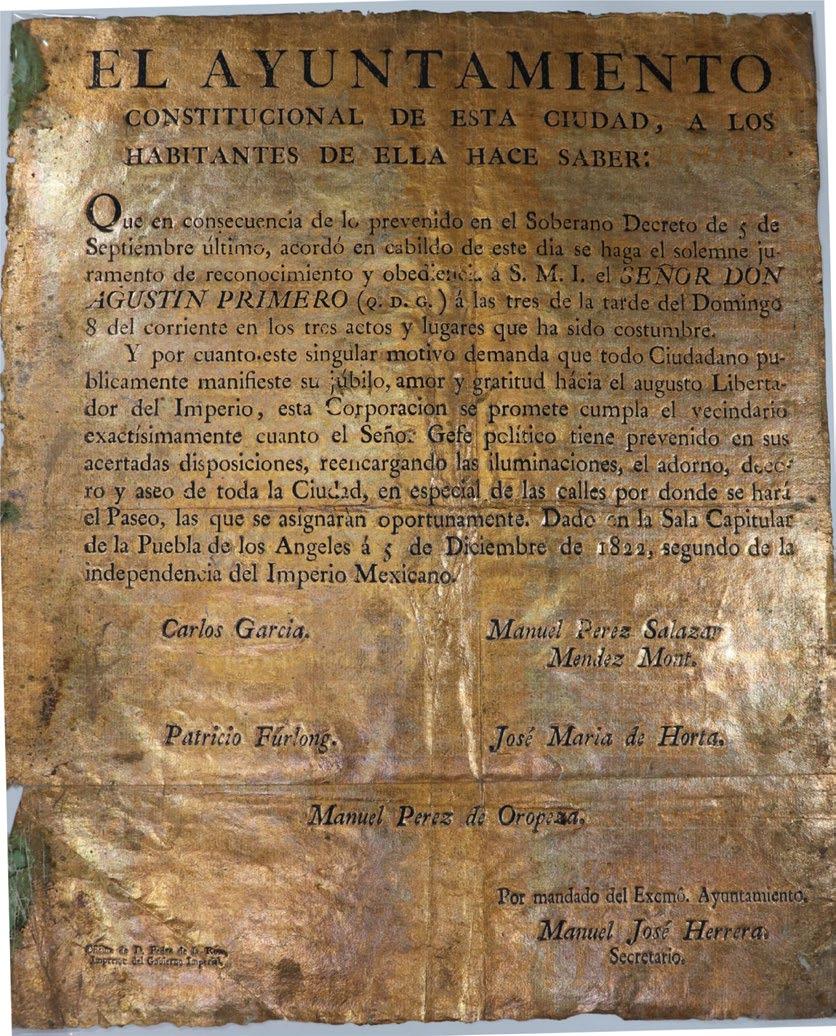 EL AYUNTAMIENTO
CONSTITUCIONAL DE ESTA CIUDAD, A LOS
HABITANTES DE ELLA HACE SABER:
Que en consecuencia de lo prevenido en el Soberano Decreto de 5 de
Septiembre último, acordó en cabildo de este dia se haga el solemne ju-
ramento de reconocimiento y obediencia á S. M. I. el SEÑOR DON
AGUSTIN PRIMERO (Q. D. G.) á las tres de la tarde del Domingo
8 del corriente en los tres actos y lugares que ha sido costumbre.
Y por cuanto este singular motivo demanda que todo Ciudadano pu-
blicamente manifieste su júbilo, amor y gratitud hácia el augusto Liberta-
dor del Imperio, esta Corporacion se promete cumpla el vecindario
exactísimamente cuanto el Señor Gefe político tiene prevenido en sus
acertadas disposiciones, reencargando las iluminaciones, el adorno, deco-
ro y aseo de toda la Ciudad, en especial de las calles por donde se hará
el Paseo, las que se asignaràn oportunamente. Dado en la Sala Capitular
de la Puebla de los Angeles á 5 de Diciembre de 1822, segundo de la
independencia del Imperio Mexicano.
Carlos Garcia.
Manuel Perez Salazar
Mendez Mont.
Patricio Fúrlong.
José Maria de Horta.
Manuel Perez de Oropeza.
Por mandado del Excmô. Ayuntamiento.
Manuel José Herrera.
Secretario.
Oficina de D. Pedro de la Rosa,
Impresor del Gobierno Imperial.